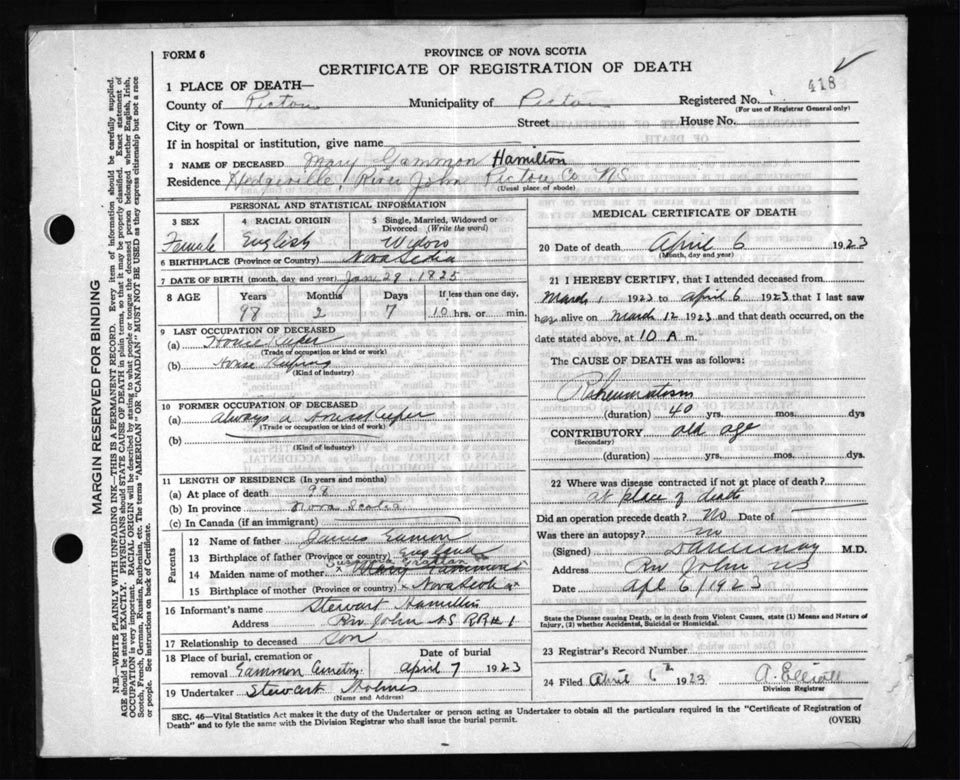 FORM 6
PROVINCE OF NOVA SCOTIA
CERTIFICATE OF REGISTRATION OF DEATH
418
1 PLACE OF DEATH—
County of Pictou Municipality of Pictou Registered No.
(For use of Registrar General only)
City or Town Street House No.
If in hospital or institution, give name
2 NAME OF DECEASED Mary Gammon Hamilton
Residence Hedgeville, River John Pictou Co NS
(Usual place of abode)
PERSONAL AND STATISTICAL INFORMATION
3 SEX 4 RACIAL ORIGIN 5 Single, Married, Widowed or Divorced (Write the word)
Female English Widow
6 BIRTHPLACE (Province or Country) Nova Scotia
7 DATE OF BIRTH (month, day and year) Jan 29. 1825
8 AGE Years Months Days If less than one day,
98 2 7 10 hrs. or min.
9 LAST OCCUPATION OF DECEASED
(a) House Keeper
(Trade or occupation or kind or work)
(b) House Keeping
(Kind of industry)
10 FORMER OCCUPATION OF DECEASED
(a) Always a Housekeeper
(Trade or occupation or kind of work)
(b)
(Kind of industry)
11 LENGTH OF RESIDENCE (In years and months)
(a) At place of death 98
(b) In province Nova Scotia
(c) In Canada (if an immigrant)
Parents
12 Name of father James Gamon
13 Birthplace of father (Province or country) England
14 Maiden name of mother
15 Birthplace of mother (Province or country) Nova Scotia
16 Informant's name Stewart Hamilton
Address Riv John NS RR# 1
17 Relationship to deceased Son
18 Place of burial, cremation or removal Gammon Cemetry. Date of burial April 7 1923
19 Undertaker Stewart Holmes
(Name and Address)
MEDICAL CERTIFICATE OF DEATH
20 Date of death April 6 1923
(Month, day and year)
21 I HEREBY CERTIFY, that I attended deceased from
March 1 1923 to April 6 1923 that I last saw
her alive on March 12 1923 and that death occurred, on the
date stated above, at 10 A m.
The CAUSE OF DEATH was as follows:
Rheumatism
(duration) 40 yrs. mos. dys
CONTRIBUTORY old age
(Secondary)
(duration) yrs. mos. dys.
22 Where was disease contracted if not at place of death?
at place of death
Did an operation precede death? No Date of
Was there an autopsy? no
(Signed) M.D.
Address Riv John NS
Date Apl 6/1923
State the Disease causing Death, or in death from Violent Causes, state (1) Means and Nature of Injury, (2) whether Accidental, Suicidal or Homicidal.
23 Registrar's Record Number
24 Filed April 6th 1923 A. Elliott
Division Registrar
SEC. 46—Vital Statistics Act makes it the duty of the Undertaker or person acting as Undertaker to obtain all the particulars required in the "Certificate of Registration of
Death" and to fyle the same with the Division Registrar who shall issue the burial permit.
(OVER)
MARGIN RESERVED FOR BINDING
N.B.—WRITE PLAINLY WITH UNFADING INK—THIS IS A PERMANENT RECORD. Every item of information should be carefully supplied.
AGE should be stated EXACTLY. PHYSICIANS should STATE CAUSE OF DEATH in plain terms, so that it may be properly classified. Exact statement of
OCCUPATION is very important. RACIAL ORIGIN will be described by stating to what people or tongue the deceased person belonged whether English, Irish,
Scotch, French, German, Russian, Ruthenian, etc. The terms "AMERICAN" OR "CANADIAN" MUST NOT BE USED as they express citizenship but not a race
or people. See instructions on back of Certificate.